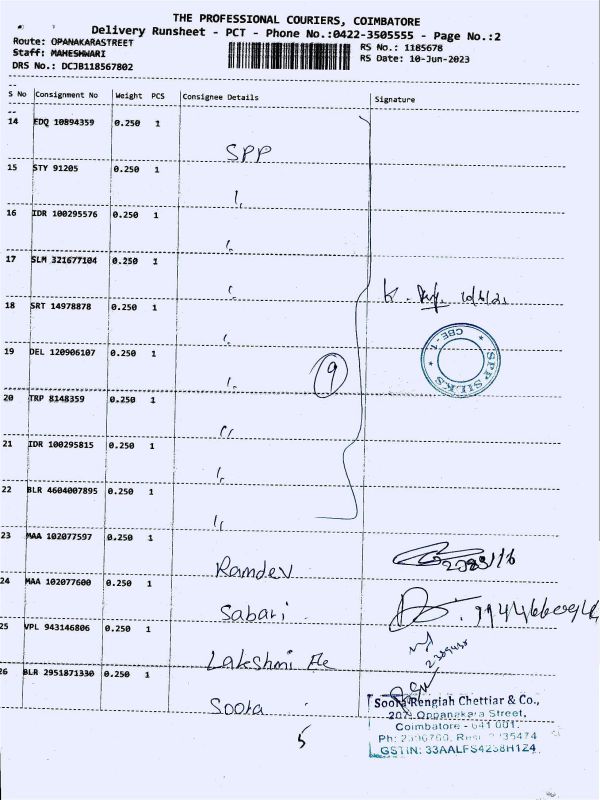 THE PROFESSIONAL COURIERS, COIMBATORE
Delivery Runsheet - PCT - Phone No.:0422-3505555 - Page No.:2
Route: OPANAKARASTREET
RS No.: 1185678
Staff: MAHESHWARI
RS Date: 10-Jun-2023
DRS No.: DCJB118567802
S No Consignment No Weight PCS Consignee Details Signature
14 EDQ 10894359 0.250 1 SPP
15 STY 91205 0.250 1 ''
16 IDR 100295576 0.250 1 ''
17 SLM 321677104 0.250 1 ''
18 SRT 14978878 0.250 1 ''
19 DEL 120906107 0.250 1 ''
9
SPP SILKS * CBE - 1. *
20 TRP 8148359 0.250 1 ''
21 IDR 100295815 0.250 1 ''
22 BLR 4604007895 0.250 1 ''
23 MAA 102077597 0.250 1 Ramdev
24 MAA 102077600 0.250 1 Sabari
25 VPL 943146806 0.250 1 Lakshmi
26 BLR 2951871330 0.250 1 Soora
5
Soora Rengiah Chettiar & Co.,
207, Oppanakara Street,
Coimbatore - 641 001.
Ph: Resi
GSTIN: 33AALFS4238H1Z4